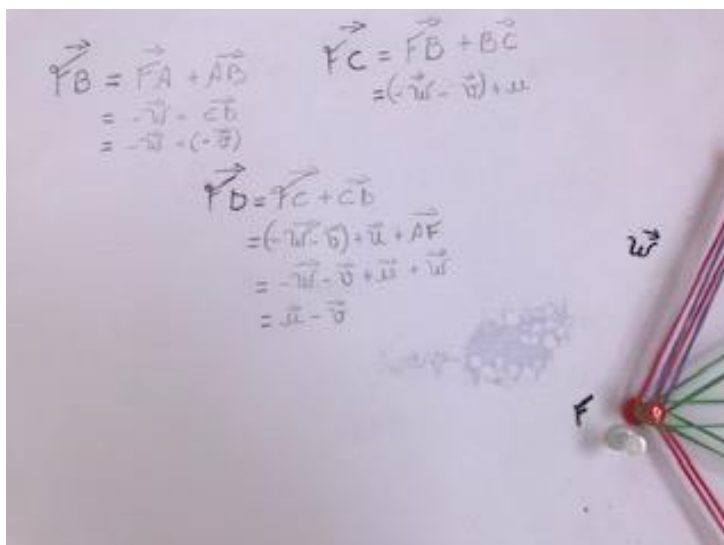 FB = FA + AB
= -w - CD
= -w - (-v)
FC = FB + BC
= (-w - v) + u
FD = FC + CD
= (-w - v) + u + AF
= -w - v + u + w
= u - v
w
F